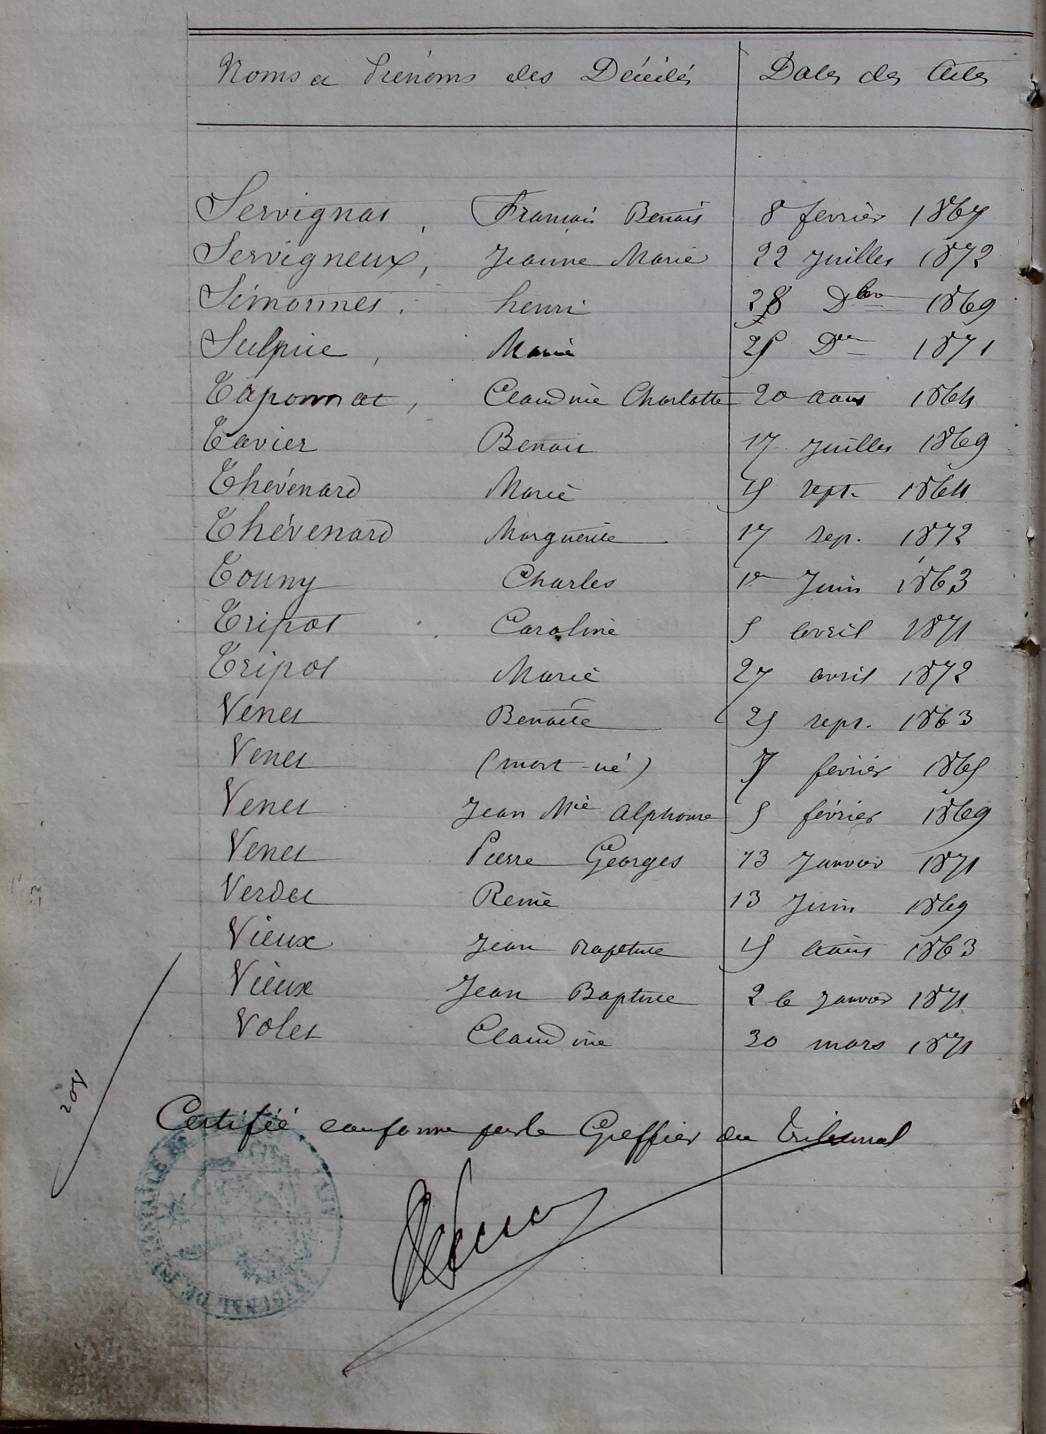 Noms et Prénoms des Décédés Dates des Actes
Servignat, François Benoit 8 fevrier 1867
Servigneux, Jeanne Marie 22 Juillet 1872
Simonnet. henri 28 Dbre 1869
Sulpice, Marie 25 Dbre 1871
Taponnat, Claudine Charlotte 20 aout 1864
Tavier Benoit 17 Juillet 1869
Thévenard Marie 15 sept. 1864
Thévenard Marguerite 17 sep. 1872
Touny Charles 1er Juin 1863
Tripot Caroline 5 avril 1871
Tripot Marie 27 avril 1872
Venet Benoite 25 sept. 1863
Venet (mort-né) 7 fevrier 1865
Venet Jean Mie Alphonse 5 février 1869
Venet Pierre Georges 13 Janvier 1871
Verdet Reine 13 Juin 1869
Vieux Jean Baptiste 15 aout 1863
Vieux Jean Baptiste 26 Janvier 1871
Volet Claudine 30 mars 1871
Certifié conforme par le Greffier du Tribunal